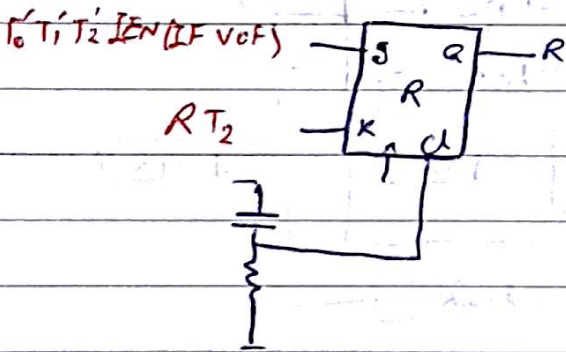 T₀' T₁' T₂' IEN (IF V OF) J Q R
R
R T₂ K cl